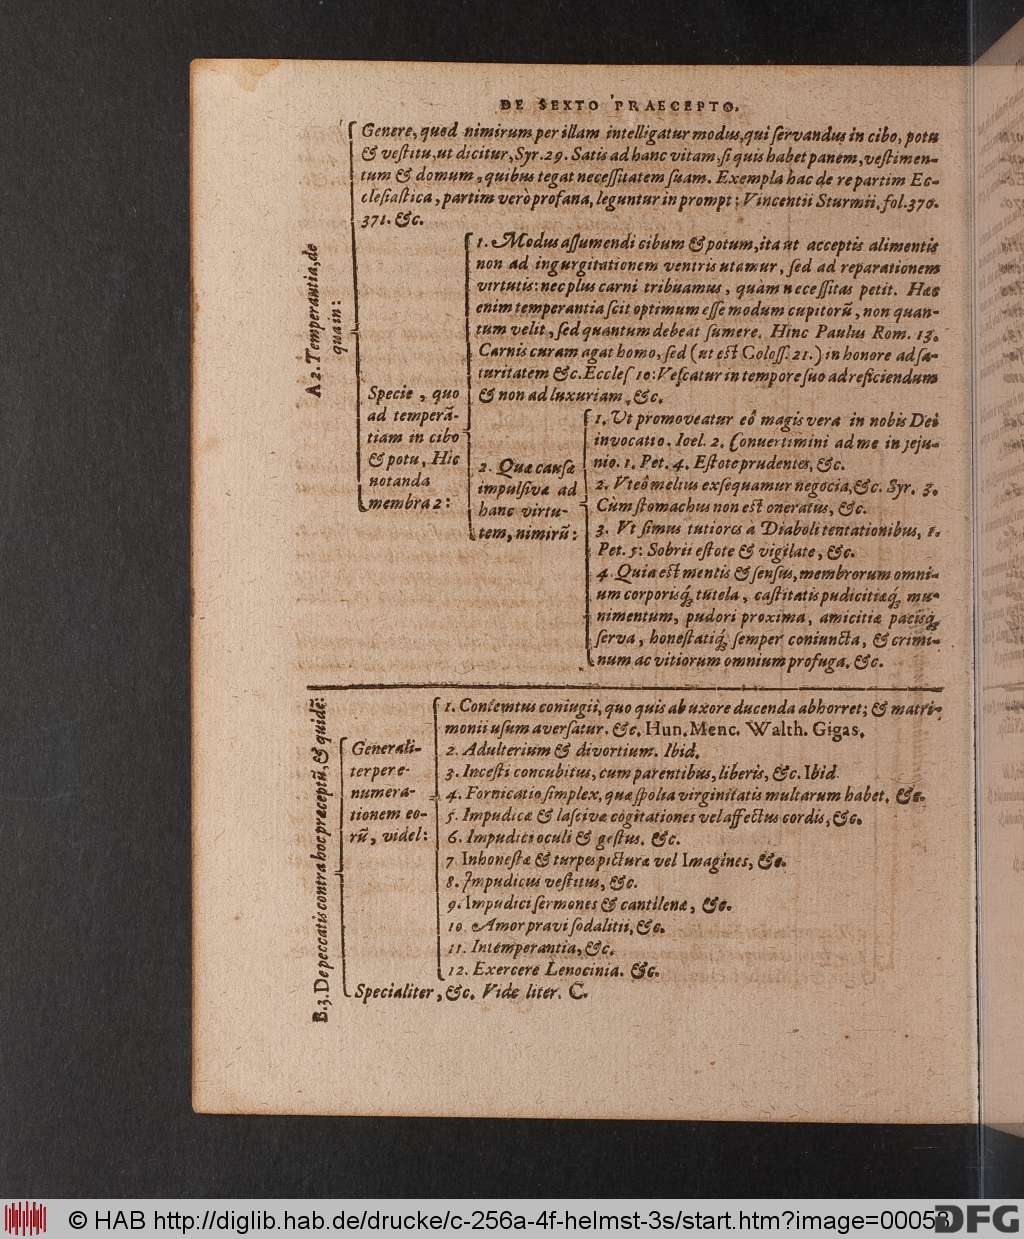 DE SEXTO PRAECEPTO.
A 2. Temperantia, de
qua in:
Genere, quod nimirum per illam intelligatur modus, qui servandus in cibo, potu
& vestitu, ut dicitur, Syr. 29. Satis ad hanc vitam, si quis habet panem, vestimen-
tum & domum, quibus tegat necessitatem suam. Exempla hac de re partim Ec-
clesiastica, partim verò profana, leguntur in prompt: Vincentii Sturmii, fol. 370.
371. &c.
Specie, quo
ad temperã-
tiam in cibo
& potu, Hic
notanda
membra 2:
1. Modus assumendi cibum & potum, ita ut acceptis alimentis
non ad ingurgitationem ventris utamur, sed ad reparationem
virtutis: nec plus carni tribuamus, quàm necessitas petit. Haec
enim temperantia scit optimum esse modum cupitorũ, non quan-
tum velit, sed quantum debeat sumere. Hinc Paulus Rom. 13.
Carnis curam agat homo, sed (ut est Coloss. 21.) in honore ad sa-
turitatem &c. Eccles 10: Vescatur in tempore suo ad reficiendum
& non ad luxuriam, &c.
2. Quae causae
impulsivae ad
hanc virtu-
tem, nimirũ:
1. Ut promoveatur eò magis vera in nobis Dei
invocatio. Ioel. 2. Convertimini ad me in jeju-
nio. 1. Pet. 4. Estote prudentes, &c.
2. Vt eò melius exsequamur negocia, &c. Syr. 3.
Cùm stomachus non est oneratus, &c.
3. Vt simus tutiores a Diaboli tentationibus, 1.
Pet. 5: Sobrii estote & vigilate, &c.
4. Quia est mentis & sensus, membrorum omni-
um corporisq́; tutela, castitatis pudicitiaeq́; mu-
nimentum, pudori proxima, amicitiae pacisq́;
serva, honestatiq́; semper coniuncta, & crimi-
num ac vitiorum omnium profuga. &c.
B. 3. De peccatis contra hoc præceptũ, & quidẽ:
Generali-
ter per e-
numera-
tionem eo-
rũ, videl:
1. Contemtus coniugii, quo quis ab uxore ducenda abhorret; & matri-
monii usum aversatur. &c. Hun. Menc. Walth. Gigas.
2. Adulterium & divortium. Ibid.
3. Incesti concubitus, cum parentibus, liberis, &c. Ibid.
4. Fornicatio simplex, quae spolia virginitatis multarum habet. &c.
5. Impudicae & lascivae cogitationes vel affectus cordis, &c.
6. Impudici oculi & gestus. &c.
7 Inhonestae & turpes picturae vel Imagines, &c.
8. Impudicus vestitus, &c.
9. Impudici sermones & cantilenae, &c.
10. Amor pravi sodalitii, &c.
11. Intemperantia, &c.
12. Exercere Lenocinia. &c.
Specialiter, &c. Vide liter. C.
© HAB http://diglib.hab.de/drucke/c-256a-4f-helmst-3s/start.htm?image=00058
DFG